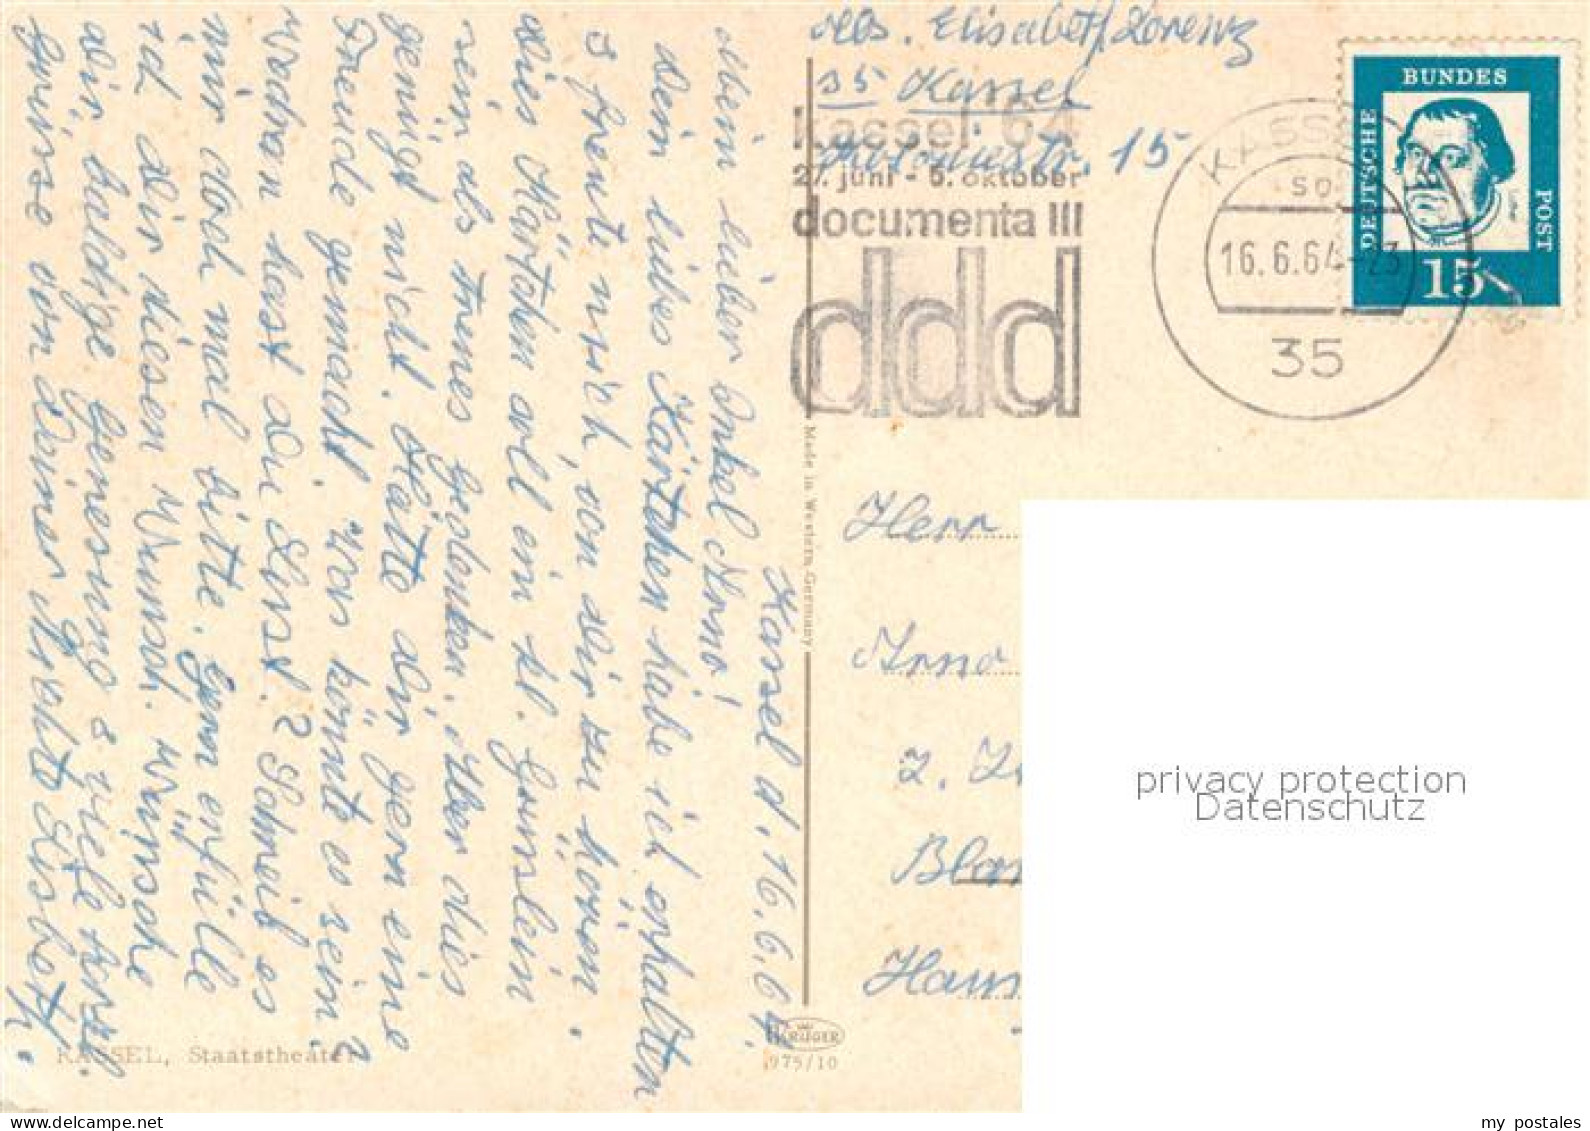 Abs. Elisabeth Lorenz
35 Kassel
15
Kassel '64
27. juni - 5. oktober
documenta III
ddd
KASSEL
16.6.64-23
35
BUNDES
DEUTSCHE
POST
15
Kassel d. 16.6.64.
Mein lieber Onkel Arno!
Dein liebes Kärtchen habe ich erhalten
& freute mich, von Dir zu hören.
Dies Kärtchen soll ein kl. Grüsslein
sein als treues Gedenken. Aber dies
genügt nicht. Hätte Dir gern eine
Freude gemacht. Was könnte es sein?
Woran hast Du Lust? Schreib es
mir doch mal bitte. Gern erfülle
ich Dir diesen Wunsch. Wünsche
Dir baldige Genesung & viele herzl.
Grüsse von Deiner Lisbeth.
Made in Western-Germany
Herr
Arno
z. Z
Blan
Haus
privacy protection
Datenschutz
KRÜGER
975/10
KASSEL, Staatstheater
my_postales